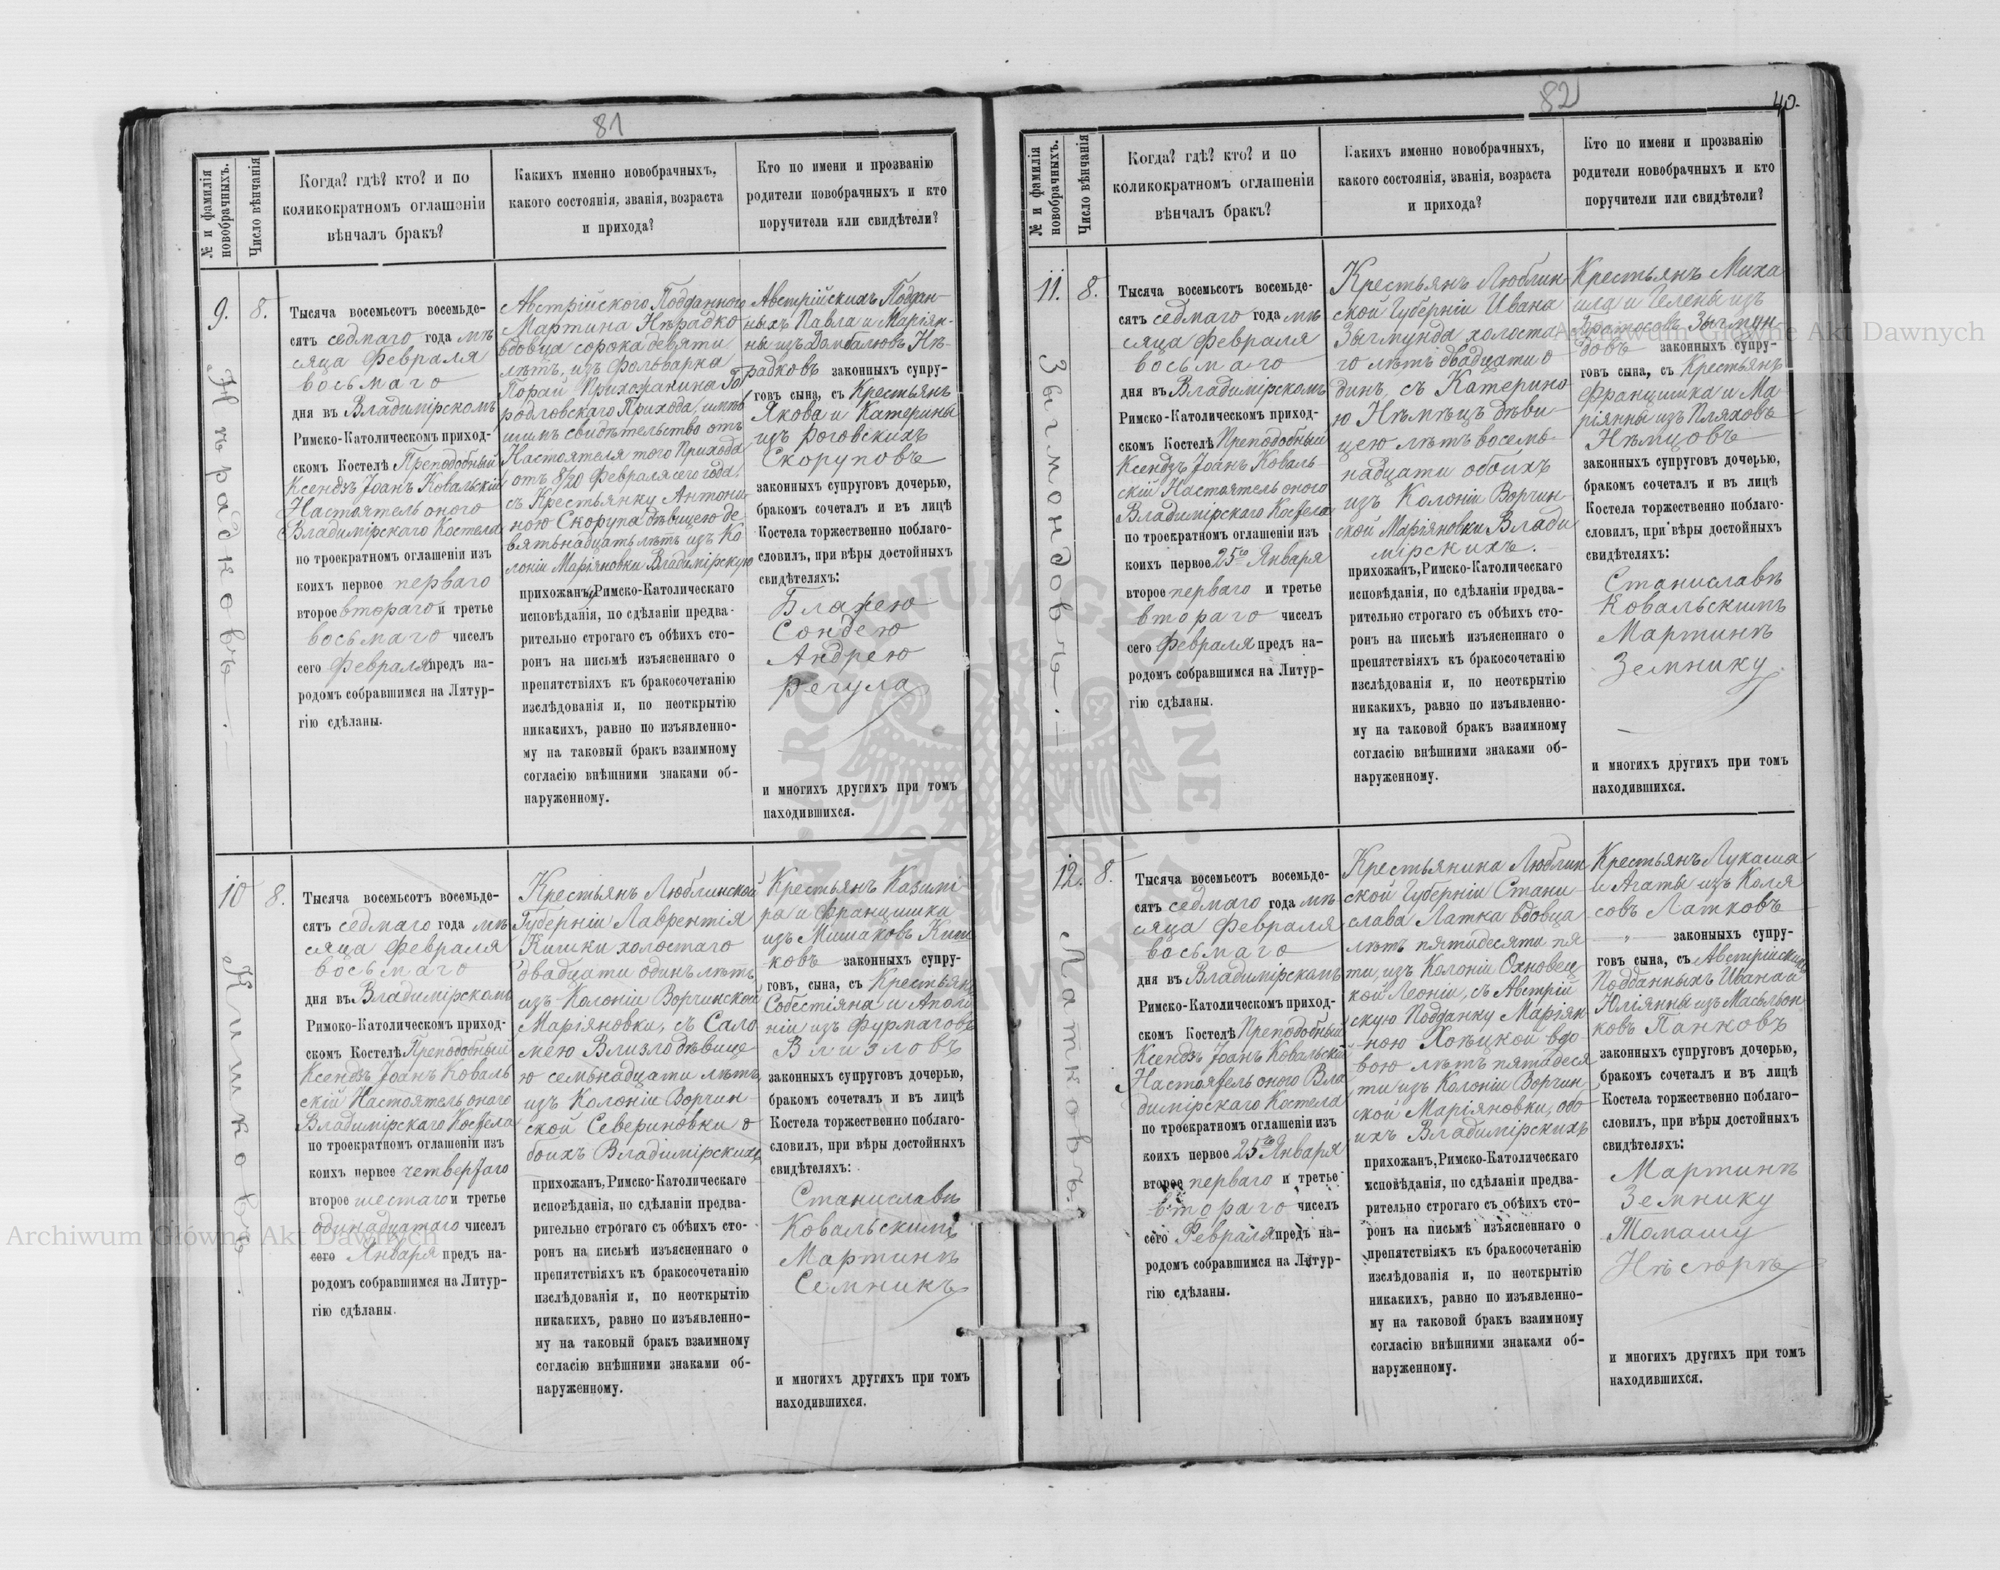 81
№ и фамилія новобрачныхъ.
Число вѣнчанія
Когда? гдѣ? кто? и по
коликократномъ оглашеніи
вѣнчалъ бракъ?
Какихъ именно новобрачныхъ,
какого состоянія, званія, возраста
и прихода?
Кто по имени и прозванію
родители новобрачныхъ и кто
поручители или свидѣтели?
9.
8.
Тысяча восемьсотъ восемьде-
сятъ седмаго года мѣ
сяца Февраля
восьмаго
дня въ Владимірскомъ
Римско-Католическомъ приход-
скомъ Костелѣ Преподобный
Ксендзъ Іоанъ Ковальскій
Настоятель оного
Владимірскаго Костела
по троекратномъ оглашеніи изъ
коихъ первое перваго
второе втораго и третье
восьмаго чиселъ
сего Февраля предъ на-
родомъ собравшимся на Литур-
гію сдѣланы.
Австрійского Подданного
Мартина Нѣрадко
вдовца сорока девяти
лѣтъ, изъ Фольварка
Порай, Прихожанина Го
родловскаго Прихода, имѣв
шимъ свидѣтельство отъ
Настоятеля того Прихода
отъ 8/20 Февраля сего года,
съ Крестьянку Антони-
ною Скорупа дѣвицею де-
вятьнадцать лѣтъ изъ Ко
лоніи Маріяновки Владимірскую
прихожанъ, Римско-Католическаго
исповѣданія, по сдѣланіи предва-
рительно строгаго съ обѣихъ сто-
ронъ на письмѣ изъясненнаго о
препятствіяхъ къ бракосочетанію
изслѣдованія и, по неоткрытію
никакихъ, равно по изъявленно-
му на таковый бракъ взаимному
согласію внѣшними знаками об-
наруженному.
Австрійскихъ Поддан-
ныхъ Павла и Маріян-
ны изъ Домбалювъ Нѣ-
радковъ законныхъ супру-
говъ сына, съ Крестьянъ
Якова и Катерины
изъ Роговскихъ
Скоруповъ
законныхъ супруговъ дочерью,
бракомъ сочеталъ и въ лицѣ
Костела торжественно поблаго-
словилъ, при вѣры достойныхъ
свидѣтеляхъ:
Блажею
Сондею
Андрею
Регула
и многихъ другихъ при томъ
находившихся.
Нѣрадковъ.
10
8.
Тысяча восемьсотъ восемьде-
сятъ седмаго года мѣ
сяца Февраля
восьмаго
дня въ Владимірскомъ
Римско-Католическомъ приход-
скомъ Костелѣ Преподобный
Ксендзъ Іоанъ Коваль
скій Настоятель оного
Владимірскаго Костела
по троекратномъ оглашеніи изъ
коихъ первое четвертаго
второе шестаго и третье
одинадцатаго чиселъ
сего Января предъ на-
родомъ собравшимся на Литур-
гію сдѣланы.
Крестьянъ Люблинской
Губерніи Лаврентія
Кишки холостаго
двадцати одинъ лѣтъ
изъ Колоніи Ворчинской
Маріяновки, съ Сало
меею Влизло дѣвице-
ю семьнадцати лѣтъ,
изъ Колоніи Ворчин-
ской Севериновки о
боихъ Владимірскихъ
прихожанъ, Римско-Католическаго
исповѣданія, по сдѣланіи предва-
рительно строгаго съ обѣихъ сто-
ронъ на письмѣ изъясненнаго о
препятствіяхъ къ бракосочетанію
изслѣдованія и, по неоткрытію
никакихъ, равно по изъявленно-
му на таковый бракъ взаимному
согласію внѣшними знаками об-
наруженному.
Крестьянъ Казимі-
ра и Францишки
изъ Мишаковъ Киш
ковъ законныхъ супру-
говъ, сына, съ Крестьянъ
Собестіяна и Аполо
ніи изъ Фурмаговъ
Влизловъ
законныхъ супруговъ дочерью,
бракомъ сочеталъ и въ лицѣ
Костела торжественно поблаго-
словилъ, при вѣры достойныхъ
свидѣтеляхъ:
Станиславъ
Ковальскимъ
Мартинъ
Семникъ
и многихъ другихъ при томъ
находившихся.
Кишковъ.
82
40.
№ и фамилія новобрачныхъ.
Число вѣнчанія
Когда? гдѣ? кто? и по
коликократномъ оглашеніи
вѣнчалъ бракъ?
Какихъ именно новобрачныхъ,
какого состоянія, званія, возраста
и прихода?
Кто по имени и прозванію
родители новобрачныхъ и кто
поручители или свидѣтели?
11.
8.
Тысяча восемьсотъ восемьде-
сятъ седмаго года мѣ
сяца Февраля
восьмаго
дня въ Владимірскомъ
Римско-Католическомъ приход-
скомъ Костелѣ Преподобный
Ксендзъ Іоанъ Коваль-
скій Настоятель оного
Владимірскаго Костела
по троекратномъ оглашеніи изъ
коихъ первое 25го Января
второе перваго и третье
втораго чиселъ
сего Февраля предъ на-
родомъ собравшимся на Литур-
гію сдѣланы.
Крестьянъ Люблин-
ской Губерніи Ивана
Зыгмунда холоста-
го лѣтъ двадцати о
динъ, съ Катерино
ю Нѣмѣцъ дѣви-
цею лѣтъ восемь-
надцати обоихъ
изъ Колоніи Ворчин-
ской Маріяновки Влади
мірскихъ.
прихожанъ, Римско-Католическаго
исповѣданія, по сдѣланіи предва-
рительно строгаго съ обѣихъ сто-
ронъ на письмѣ изъясненнаго о
препятствіяхъ къ бракосочетанію
изслѣдованія и, по неоткрытію
никакихъ, равно по изъявленно-
му на таковой бракъ взаимному
согласію внѣшними знаками об-
наруженному.
Крестьянъ Миха
ила и Гелены изъ
Зыгмун
довъ законныхъ супру-
говъ сына, съ Крестьянъ
Францишка и Ма
ріянны изъ Пляховъ
Нѣмцовъ
законныхъ супруговъ дочерью,
бракомъ сочеталъ и въ лицѣ
Костела торжественно поблаго-
словилъ, при вѣры достойныхъ
свидѣтеляхъ:
Станиславъ
Ковальскимъ
Мартинъ
Земнику
и многихъ другихъ при томъ
находившихся.
Зыгмондовъ.
12.
8.
Тысяча восемьсотъ восемьде-
сятъ седмаго года мѣ
сяца Февраля
восьмаго
дня въ Владимірскомъ
Римско-Католическомъ приход-
скомъ Костелѣ Преподобный
Ксендзъ Іоанъ Ковальскій
Настоятель оного Вла
димірскаго Костела
по троекратномъ оглашеніи изъ
коихъ первое 25го Января
второе перваго и третье
втораго чиселъ
сего Февраля предъ на-
родомъ собравшимся на Литур-
гію сдѣланы.
Крестьянина Люблин
ской Губерніи Стани-
слава Латка вдовца
лѣтъ пятидесяти пя
ти, изъ Колоніи Охновец
кой Леоніи, съ Австрій
скую Подданку Маріян-
ною Хоѣцкой вдо-
вою лѣтъ пятидеся
ти изъ Колоніи Ворчин
ской Маріяновки, обо
ихъ Владимірскихъ
прихожанъ, Римско-Католическаго
исповѣданія, по сдѣланіи предва-
рительно строгаго съ обѣихъ сто-
ронъ на письмѣ изъясненнаго о
препятствіяхъ къ бракосочетанію
изслѣдованія и, по неоткрытію
никакихъ, равно по изъявленно-
му на таковой бракъ взаимному
согласію внѣшними знаками об-
наруженному.
Крестьянъ Лукаша
и Агаты изъ Коля
совъ Латковъ
законныхъ супру-
говъ сына, съ Австрійскихъ
Подданныхъ Ивана и
Юліянны изъ Масьлон
ковъ Панковъ
законныхъ супруговъ дочерью,
бракомъ сочеталъ и въ лицѣ
Костела торжественно поблаго-
словилъ, при вѣры достойныхъ
свидѣтеляхъ:
Мартинъ
Земнику
Томашу
и многихъ другихъ при томъ
находившихся.
Латковъ.
Archiwum Główne Akt Dawnych
Archiwum Główne Akt Dawnych
ARCHIWUM GŁÓWNE AKT DAWNYCH